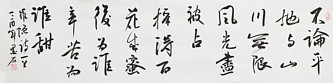 不论平
地与山
川无限
风光尽
被占
采得百
花成蜜
后为谁
辛苦为
谁甜